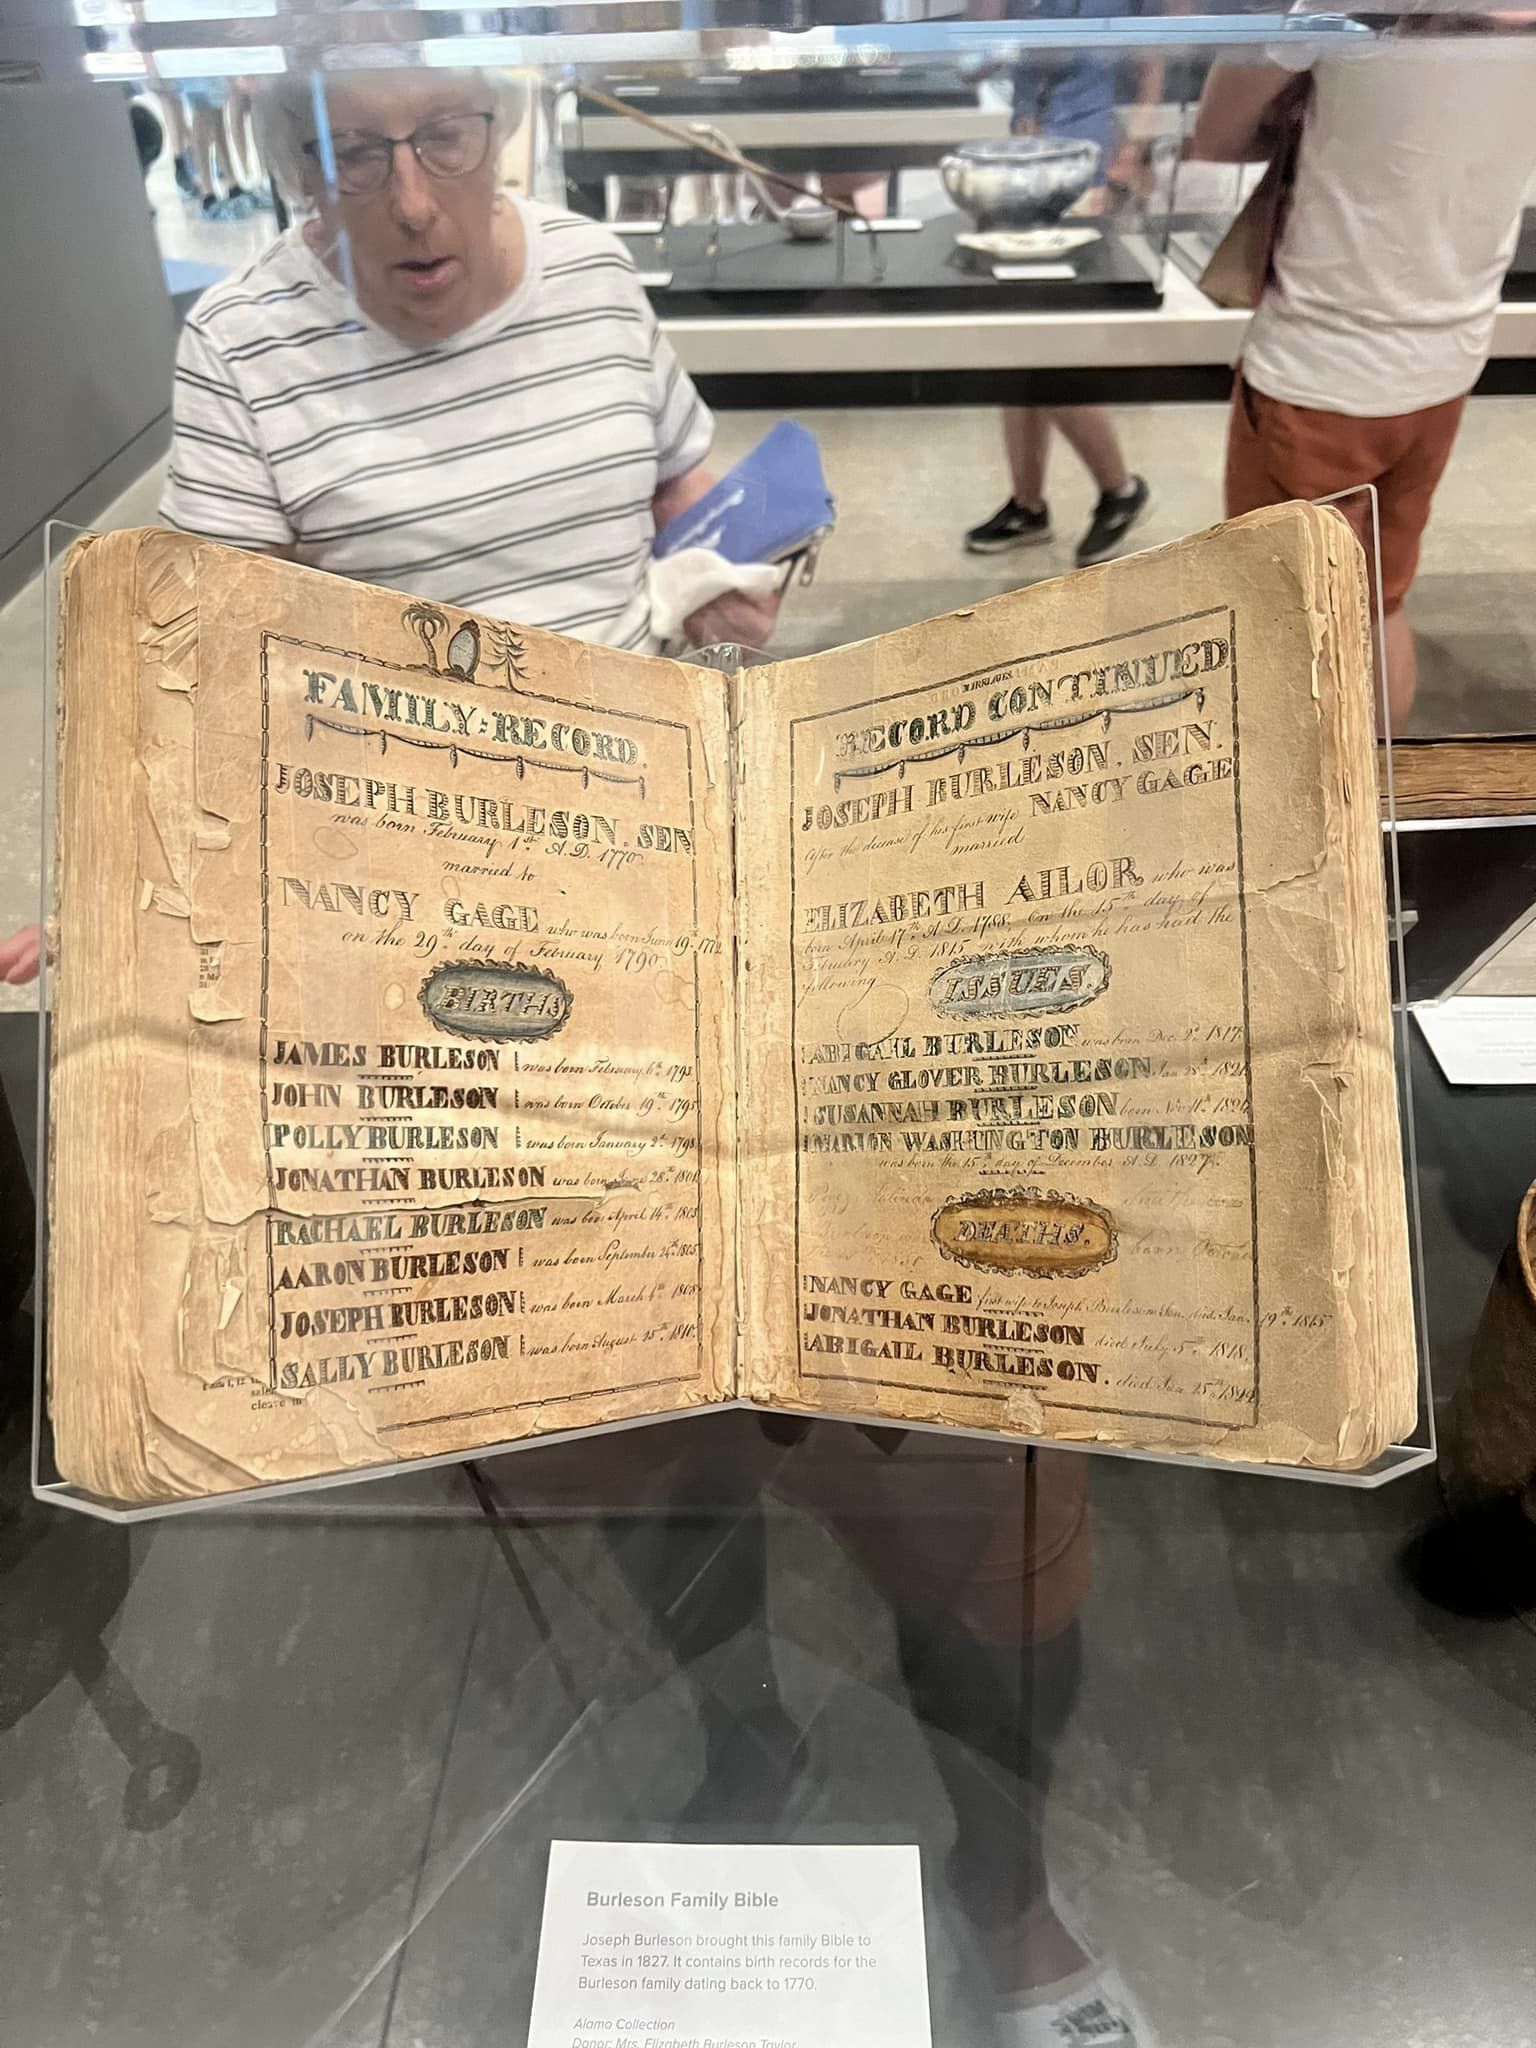 FAMILY-RECORD.
JOSEPH BURLESON. SEN
was born February 1st A.D. 1770.
married to
NANCY GAGE who was born June 19th 1772
on the 29th day of February 1790
BIRTHS
JAMES BURLESON was born February 6th 1793
JOHN BURLESON was born October 19th 1795
POLLY BURLESON was born January 2d 1798
JONATHAN BURLESON was born June 28th 1801
RACHAEL BURLESON was born April 14th 1803
AARON BURLESON was born September 24th 1805
JOSEPH BURLESON was born March 6th 1808
SALLY BURLESON was born August 15th 1810
MARRIAGES.
RECORD CONTINUED
JOSEPH BURLESON, SEN.
After the decease of his first wife NANCY GAGE
married
ELIZABETH AILOR who was
born April 17th A.D. 1788, On the 15th day of
February A.D. 1815, with whom he has had the
following
ISSUES.
ABIGAIL BURLESON was born Dec. 2d 1817
NANCY GLOVER BURLESON Jan 28th 1821
SUSANNAH BURLESON born Nov 11th
MARION WASHINGTON BURLESON
was born the 15th day of December A.D. 1827.
DEATHS.
NANCY GAGE first wife to Joseph Burleson Sen. died Jan. 19th 1815
JONATHAN BURLESON died July 5th 1818,
ABIGAIL BURLESON. died Jan 25th
Burleson Family Bible
Joseph Burleson brought this family Bible to
Texas in 1827. It contains birth records for the
Burleson family dating back to 1770.
Alamo Collection
Donor: Mrs. Elizabeth Burleson Taylor